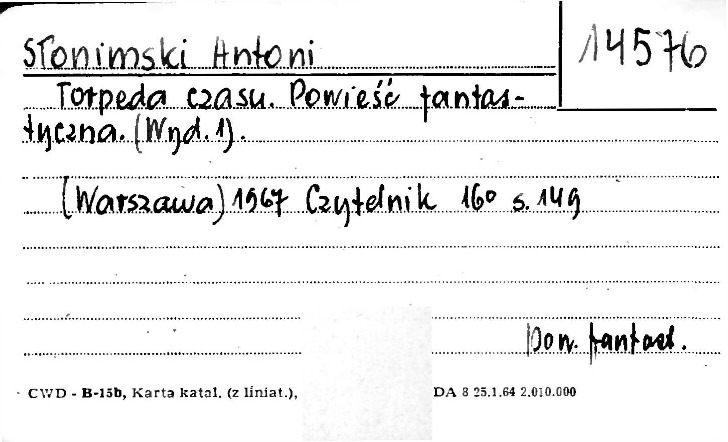 Słonimski Antoni
14576
Torpeda czasu. Powieść fantas-
tyczna. (Wyd. 1).
(Warszawa) 1967 Czytelnik 16° s. 149
Pow. fantast.
CWD - B-15b, Karta katal. (z liniat.), DA 8 25.1.64 2.010.000